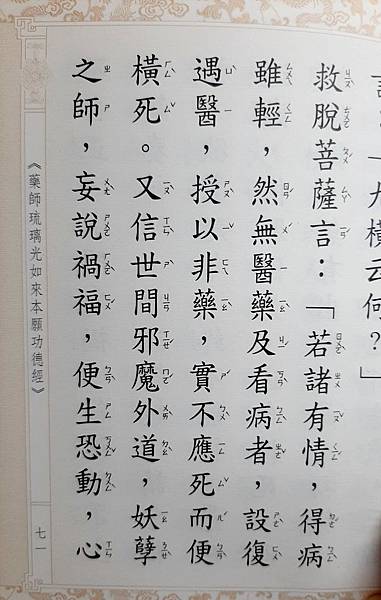 言：「九橫云何？」
救脫菩薩言：「若諸有情，得病
雖輕，然無醫藥及看病者，設復
遇醫，授以非藥，實不應死而便
橫死。又信世間邪魔外道，妖孽
之師，妄說禍福，便生恐動，心
《藥師琉璃光如來本願功德經》
七一